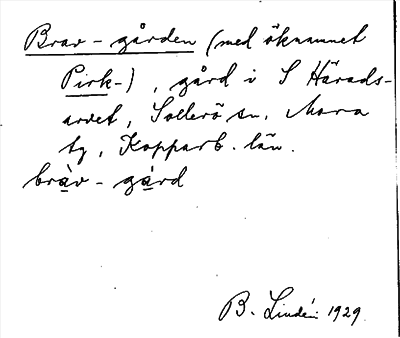 Brav-gården (med öknamnet
Pirk-), gård i S Härads-
arvet, Sollerö sn, Mora
tg, Kopparb. län.
bràv-gàrd
B. Lindén 1929